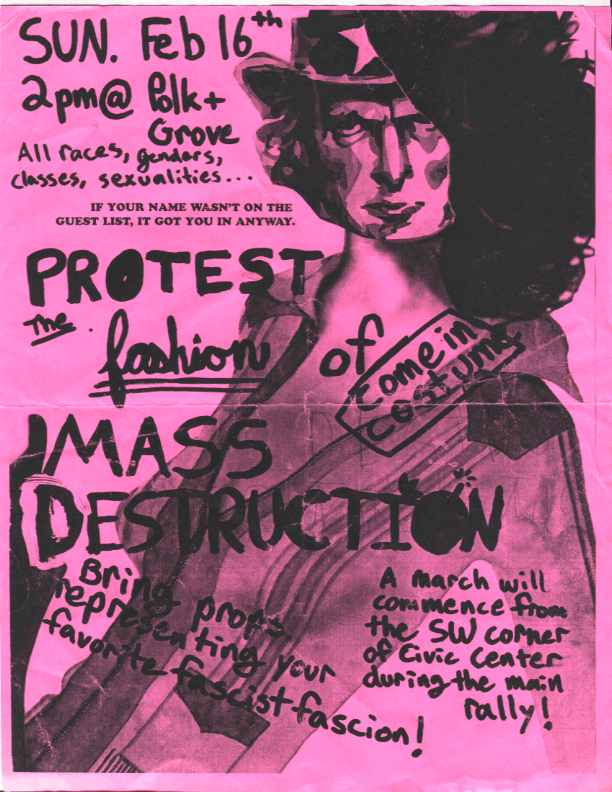 SUN. Feb 16th
2pm@ Polk +
Grove
All races, genders,
classes, sexualities...
IF YOUR NAME WASN'T ON THE
GUEST LIST, IT GOT YOU IN ANYWAY.
PROTEST
the
fashion of
Come in
costume
MASS
DESTRUCTION
Bring props
representing your
favorite fascist fascion!
A march will
commence from
the SW corner
of Civic Center
during the main
rally!